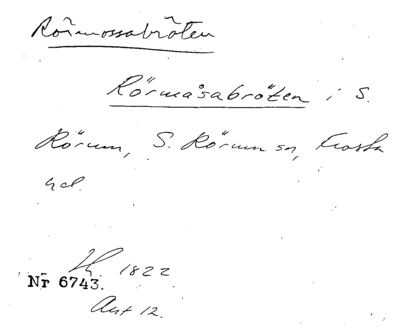 Rörmossabröten
Rörmåsabröten i S.
Rörum, S. Rörum sn, Frosta
hd.
1822
Nr 6743.
Akt 12.